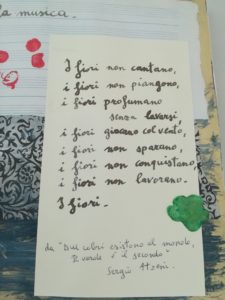 la musica.
I fiori non cantano,
i fiori non piangono,
i fiori profumano
senza lavarsi,
i fiori giocano col vento,
i fiori non sparano,
i fiori non conquistano,
i fiori non lavorano.
I fiori.
da "Due colori esistono al mondo,
Il verde è il secondo"
Sergio Atzeni.